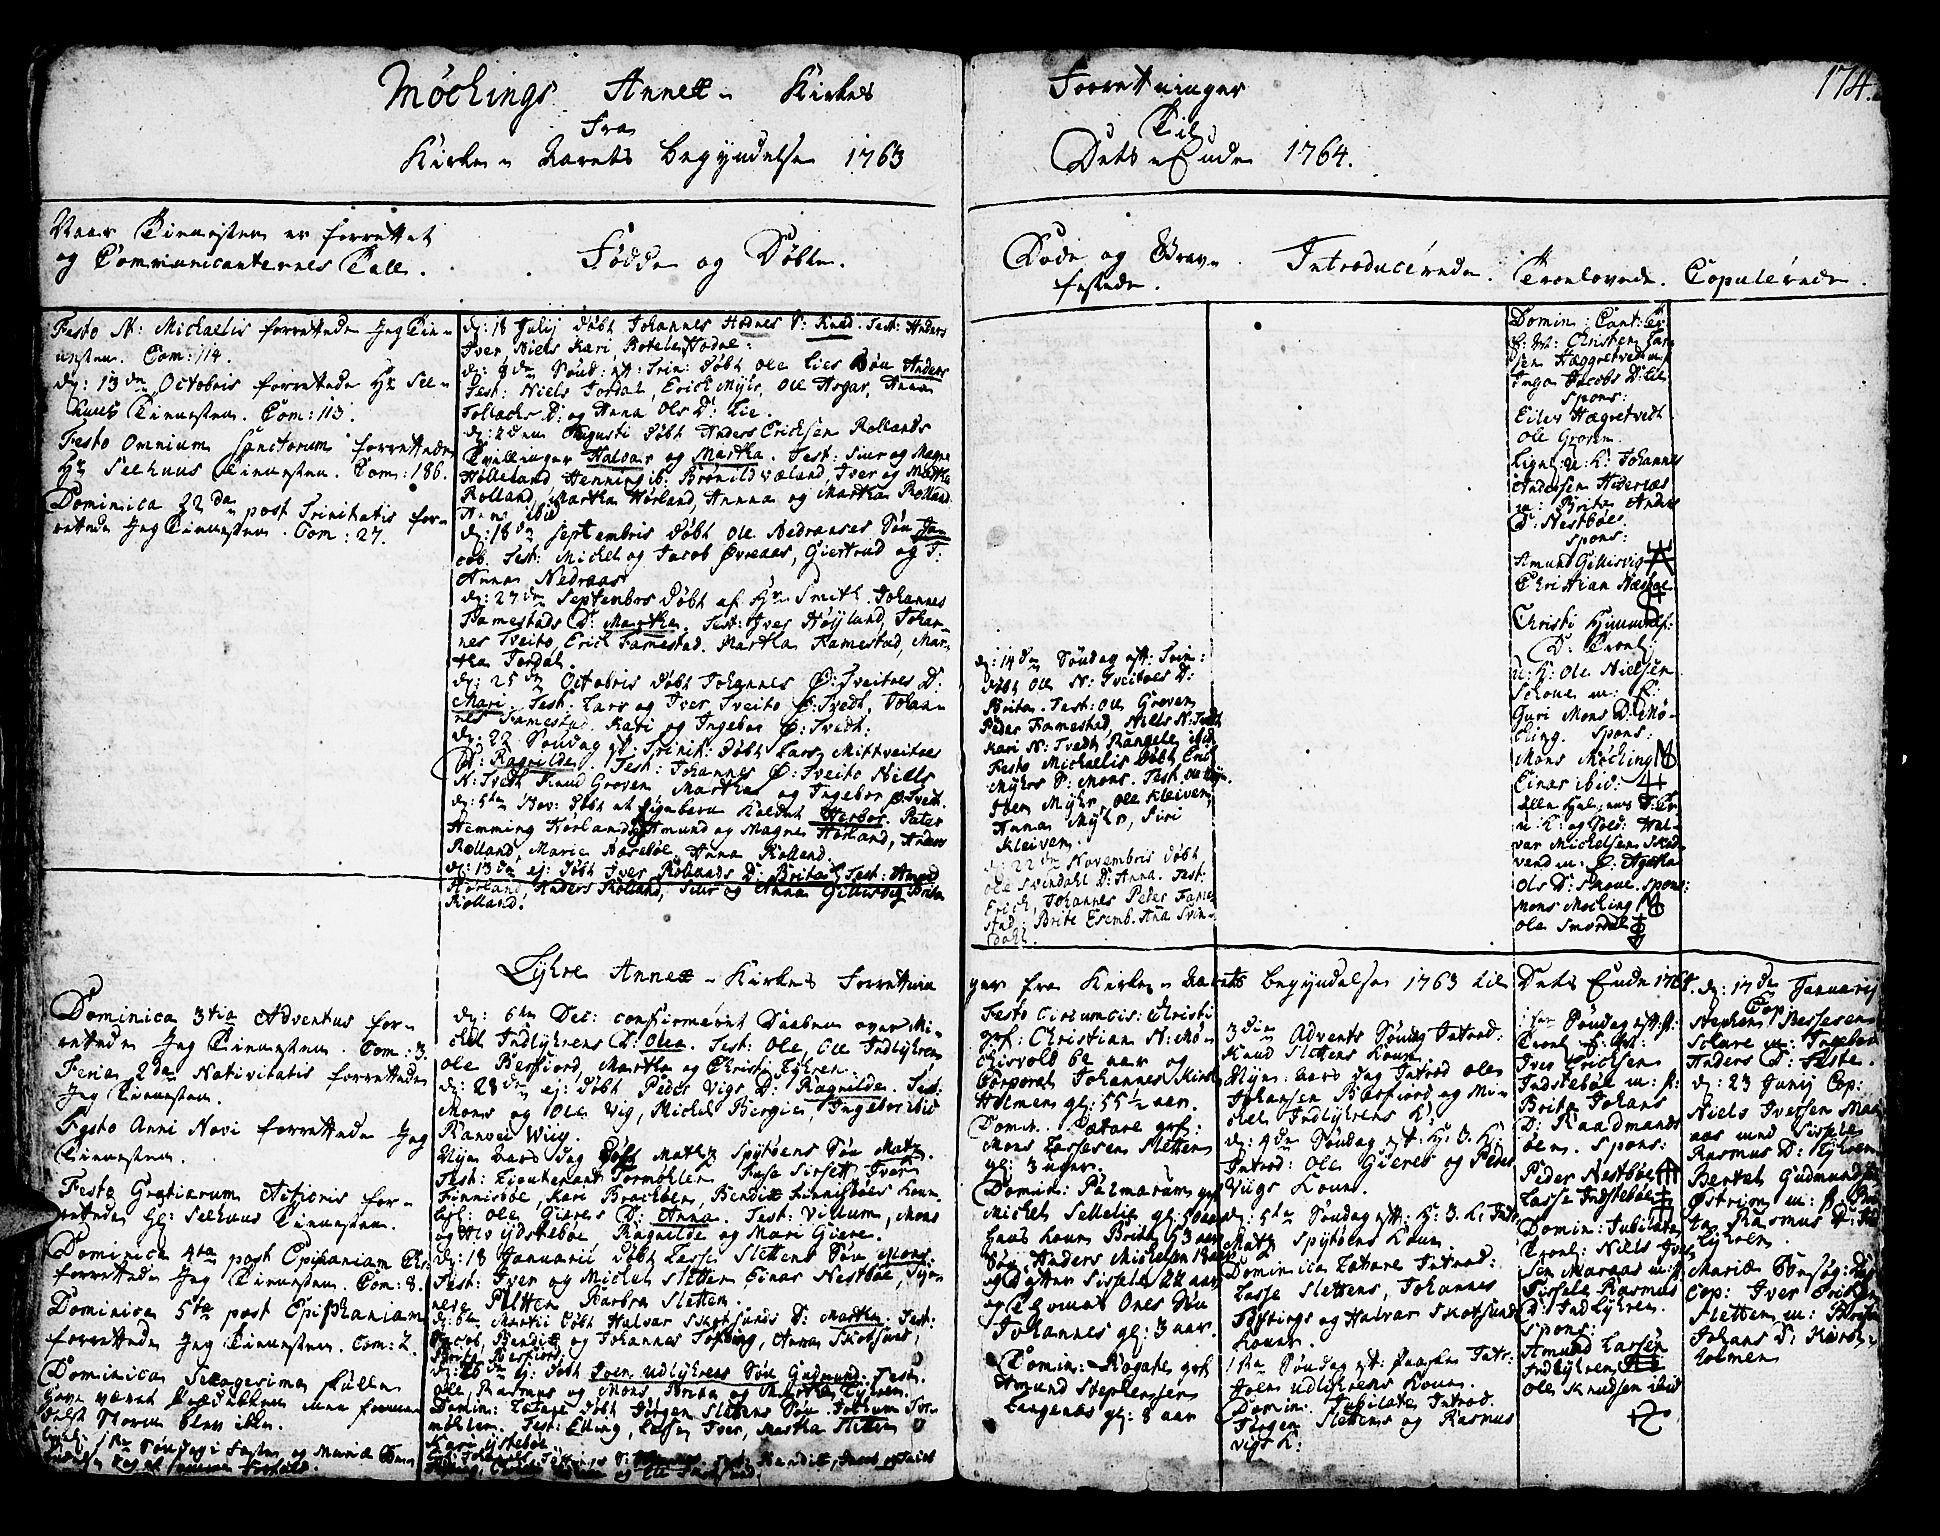 Möchings Annex Kirkes Forretninger
174.
Fra Til
Kirke-Aarets begyndelse 1763 Dets Ende 1764.
Naar Tienesten er forrettet
og Communicanternes Tall.
Fødde og Døbte.
Døde og Grav-
festede.
Introducerede.
Troelovede.
Copulerede.
Festo St: Michaelis forrettede Jeg Tien-
unsten. Com: 114.
d: 13de Octobris forrettede Hr Sel-
huus Tienesten. Com: 113.
Festo Omnium Sanctorum forrettede
Hr Selhuus Tienesten. Com: 186.
Dominica 22da post Trinitatis for-
rettede Jeg Tienesten. Com: 27.
d: 18 Julij Døbt Johannes Hodnes S: Knud. Test: Anders
Iver, Niels Kari Botele Hodne:
d: 8de Sønd: eft: Trin: Døbt Ole Lies Søn Anders
Test: Niels Jordal, Erick Myhr, Ole Aogar, Anna
Tollachs D: og Anna Ols D: Lie.
Augusti Døbt Anders Ericksen Rollands
Tvillinger Halvar og Martha. Test: Siur og Magne
Hølleland, Henning ib: Brønildvæland, Iver og Martha
Rolland, Martha Hørland, Anna og Martha Rolland
ibid
d: 18de Septembris Døbt Ole Nedraases Søn Jac-
ob. Test: Michel og Jacob Øvreaas, Giertrud og
Anna Nedraas
d: 27de Septembrs Døbt af Hr Smith. Johannes
Famestads D: Martha. Test: Iver Høyland, Johan-
nes Tveito, Erich Famestad. Martha Famestad, Mar-
tha Jordal.
d: 25de Octobris Døbt Johannes Ø: Tveitoes D:
Mari. Test: Lars og Iver Tveito Ø: Tvedt, Johan-
nes Famestad Kari og Ingebor Ø: Tvedt:
d: 22 Søndag eft: Trinit: Døbt Lars Mittveitoes
D: Ragnilde. Test: Johannes Ø: Tveito Niells
N: Tvedt Knud Groven Martha og Ingebor Ø: Tvedt.
d: 5te Nov: Døbt et Kaldet Herbor. Peter
Hemming Hørland, Amund og Magne Hørland, Anders
Rolland, Marie Aasebøe, Anna Rolland.
d: 13de ej: Døbt Iver Rollands D: Brita. Test: Amund
Hørland, Anders Rolland, Siur og Anna Gillisvig Brita
Rolland.
d: 14de Søndag eft: Trin:
Døbt Ole N: Tveitoes D:
Brita. Test: Ole Groven
Peder Famestad, Niells N: Tvedt
Kari N: Tvedt, Rangele ibid
Festo Michaelis Døbt Eric
Myhrs S: Mons. Test: Ole
Myhr, Ole Kleiven,
Anna Myhr, Siri
Kleiven.
d: 22de Novembris Døbt
Ole Svendahl D: Anna. Test:
Erich, Johannes Peter Fame-
stad: Brite Esemb. Ana Svin-
dahl.
Domin: Cant:
Christen Lar-
sen Hæggretvedt
Inga Jacobs D: Lie
Spons:
Eiler Hægretvedt
Ole Groven
Johannes
Andersen
m: Brita Anders
D: Nestbøe.
Spons:
Amund Gillisvig
Christian Næsbøe
Christi Himmelf:
D: Troel:
U: K: Ole Nielsen
Skoue m: P:
Guri Mons D: Mø-
ching. Spons:
Mons Møching
Einar ibid:
Alle Hel: T:
U: K: og Sold: Hal-
var Michelsen Skud-
vend m: P: Agatha
Ols D: Smoue. Spons:
Mons Moching
Ole Smordal
Lyhre Annex-Kirkes Forretnin
ger fra Kirke-Aarets begyndelse 1763 til Dets Ende 1764.
Dominica 3tia Adventus for-
rettede Jeg Tienesten. Com: 3.
Feria 2da Nativitatis forrettede
Jeg Tienesten.
Festo Anni Novi forrettede Jeg
Tienesten.
Festo Gratiarum Actionis for-
rettede Hr: Selhuus Tienesten.
Dominica 4ta post Epiphaniam
forrettede Jeg Tienesten. Com: 8.
Dominica 5ta post Epiphaniam
forrettede Jeg Tienesten. Com: 2.
Dominica Sexagesima skulle
have været Prædicken men formedelst Storm blev ikke.
1ste Søndag i Fasten og Mariæ
d: 6te Dec: confirmeret Daaben over Mi-
chel Indlyhrens D: Olea. Test: Ole, Ole Indlyhren
Ole Berfiord, Martha og Christi Lyhren.
d: 28de ej: Døbt Peder Vigs D: Ragnilde. Test:
Mons og Ole Vig, Michel Birgie, Ingebor ibid
Ranvei Wiig.
Nyt Aars Dag Døbt Matz Spytøens Søn Matz.
Test: Lieutenant Tormøhlen Lasse Sirsett Iver
Finnisbøe, Kari Brachøen, Bendix Linnisbøes Kone
Ole Gieres D: Anna. Test: Villum, Mons
og Ragnilde og Mari Giere.
d: 18 Januarii Døbt Lasse Slettens Søn Mons.
Test: Iver og Michel Sletten Einar Nestbøe,
Pletten Barbra Sletten.
d: 6te Martii Døbt Halvar Skotsunds D: Martha. Test:
Jacob, Bendix og Johannes Tofting, Anna Skotsund,
Berfiord.
d: 26de ej: Døbt Joen Udlyhrens Søn Gudmund. Test:
Ole, Rasmus og Mons, Brita og Martha Lyhren.
Domin: Lætare Døbt Jørgen Slettens Søn Jochum Tor-
møhlen. Test: Elling, Lasse, Iver, Martha Sletten
Kari Ystebøe.
Festo Circumcis: Christi
grf: Christian N: Mø-
chisvold 62 aar og
Corporal Johannes Kirk-
Holmen gl: 55½ aar.
Domin: Lætare grf:
Mons Lassesen Sletten
gl: 3 uger.
Domin: Palmarum grf
Michel Sellelie gl: 50 aar
hans Kone Brite 53 aar
Søn Anders Michelsen 18 aar
og Datter Sissele 22 aar
og Thomas Ones Søn
Johannes gl: 3 aar.
Domin: Rogate grf
Amund Stephensen
Langenæs gl: 8 aar
3die Advents Søndag Introd:
Knud Slettens Koune
Nyt: aars dag Introd Ole
Johansen Barfiord og Mi-
chel Indlyhrens K:
d: 4de Søndag eft: H: 3. K:
Introd: Ole Gieres og Peder
Viigs Koune.
d: 5te Søndag eft: H: 3. K: Intr:
Matz Spytøens Koune
Dominica Lætare Introd:
Lasse Slettens, Johannes
Toftings og Halvar Skotsunds
Koune.
1ste Søndag eft: Paaske Intr:
Joen Udlyhrens Koune.
Domin: Jubilate Introd.
Jørgen Slettens og Rasmus
Vigs K:
Søndag eft:
Troel:
Iver Ericksen
Indstebøe m: P:
Brita Johans
D: Raadmands
øen. Spons:
Peder Nestbøe
Lasse Indstebøe
Domin: Jubilate
Troel: Niels Iver-
sen Maraas m: P:
Sissele Rasmus
D: Indlyhren.
Spons:
Amund Lassen
Indlyhren
Ole Knudsen ibid
d: 17de Januarij
Cop:
Stephen Bessesen
Solure m: Ingebor
Anders D: Teste.
d: 23 Junij Cop:
Niels Iversen Mar-
aas med Sissele
Rasmus D: Lyhren
Bertel Gudmundsen
Østrion m: P: Bri-
ta Rasmus D:
Lyhren.
Mariæ Besøg: Dag
Cop: Iver Ericksen
Sletten m: Brita
Johans D: Kirch-
holmen